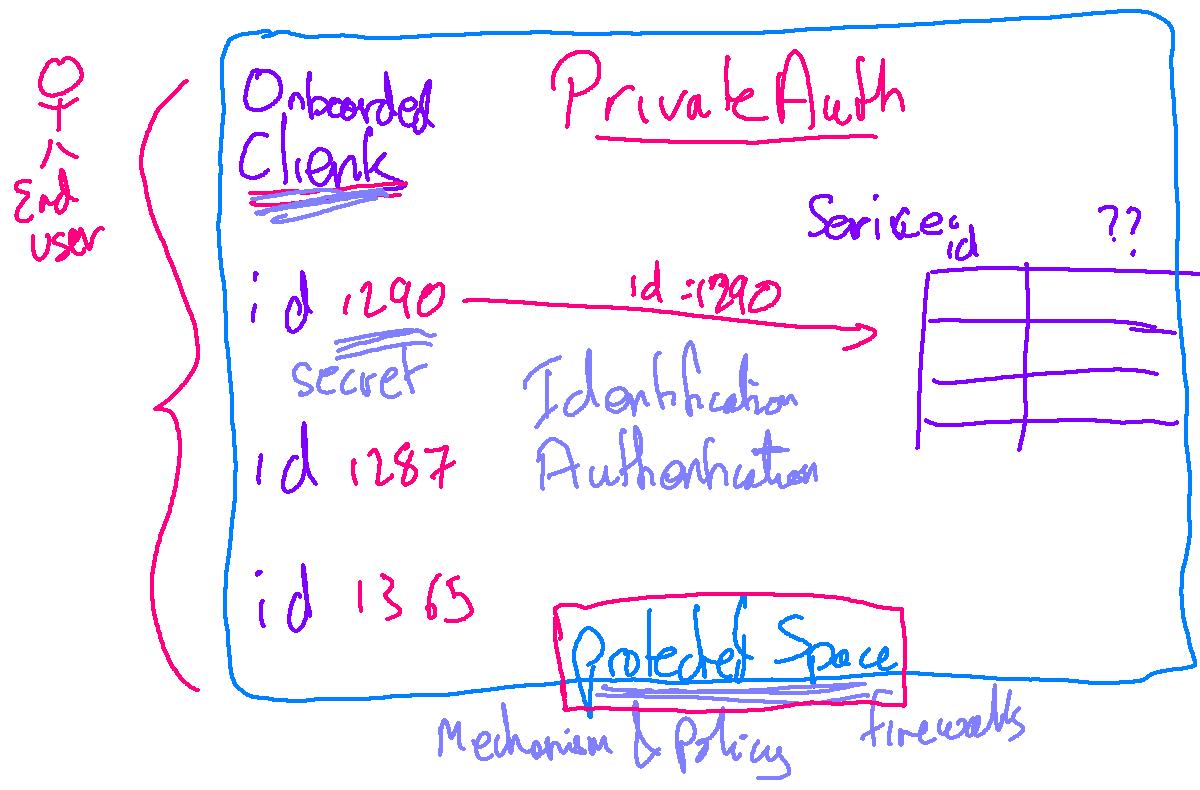 Onboarded
Clients
PrivateAuth
End
user
Serivce id
??
id 1290
id = 1290
secret
Identification
Authentication
id 1287
id 1365
Protected Space
Mechanism & Policy
Firewalls